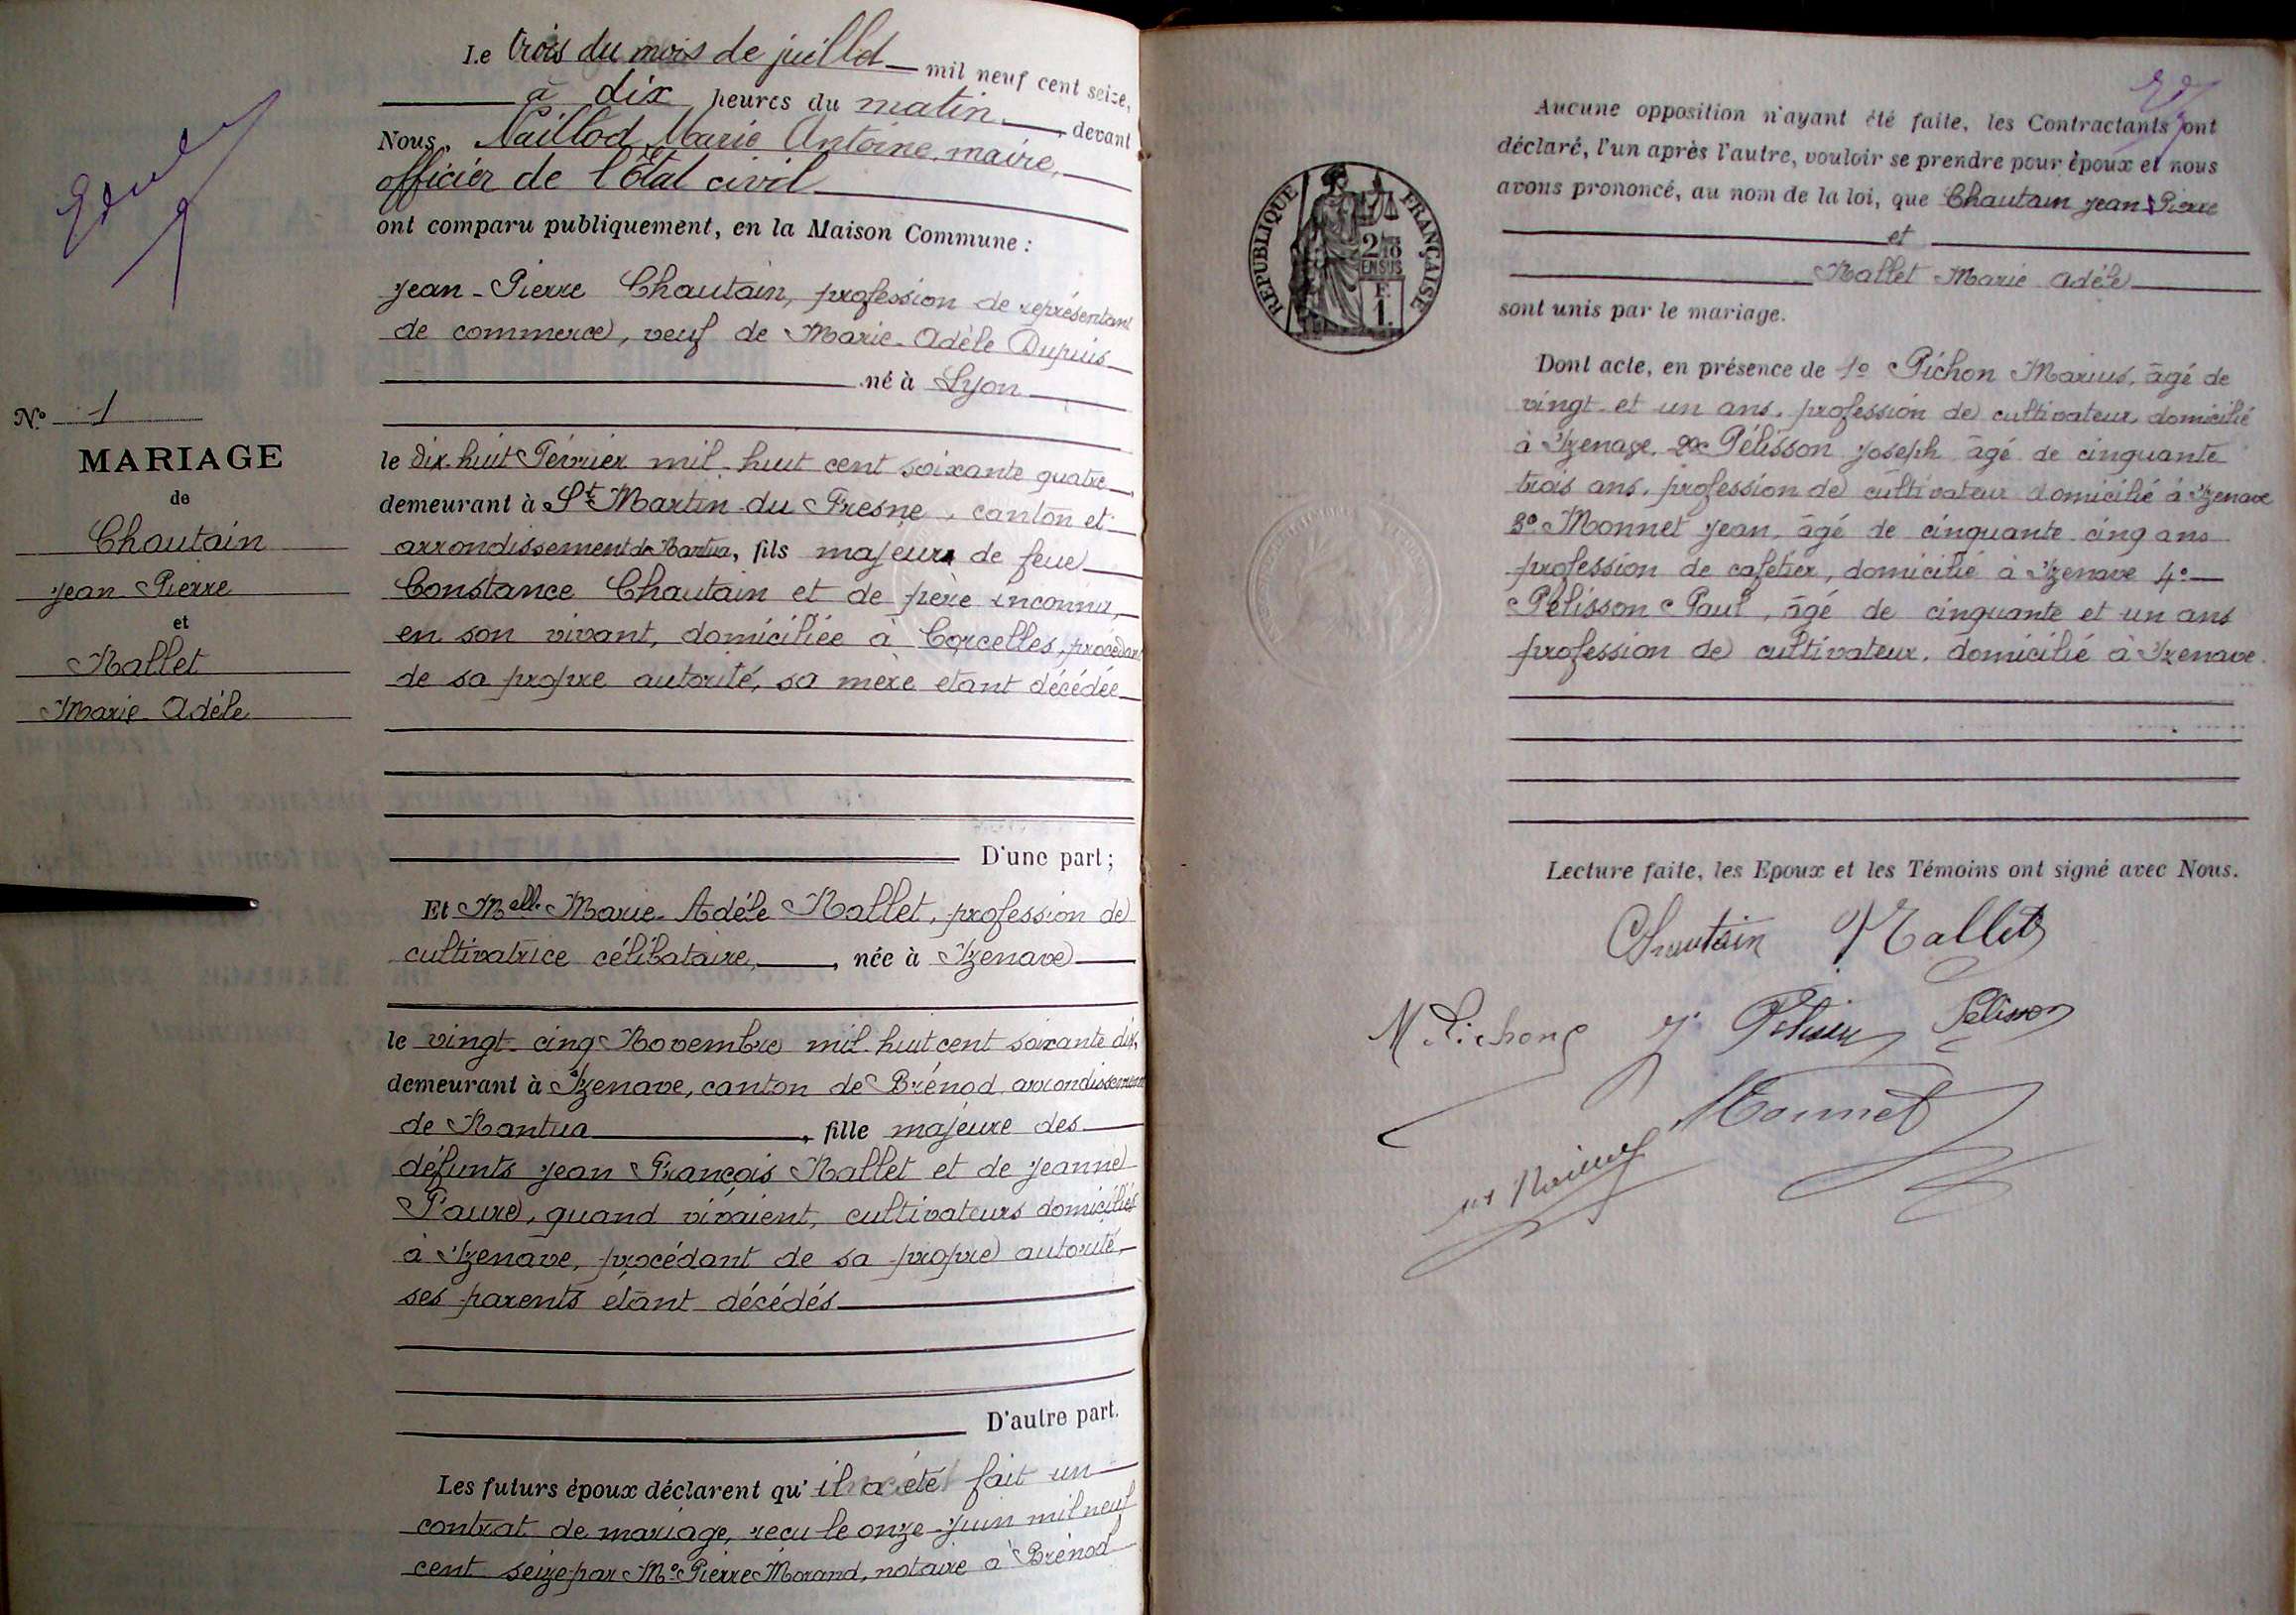 Le trois du mois de juillet mil neuf cent seize,
à dix heures du matin, devant
Nous, Naillod Marie Antoine, maire,
officier de l'État civil
ont comparu publiquement, en la Maison Commune :
Jean-Pierre Chautain, profession de représentant
de commerce, veuf de Marie-Adèle Dupuis
né à Lyon
le dix-huit Février mil-huit cent soixante quatre
demeurant à St Martin-du Fresne, canton et
arrondissement de Nantua, fils majeur de feue
Constance Chautain et de père inconnu,
en son vivant, domiciliée à Corcelles, procédant
de sa propre autorité, sa mère étant décédée
D'une part ;
Nº 1
MARIAGE
de
Chautain
Jean Pierre
et
Nallet
Marie Adèle
Et Melle Marie-Adèle Nallet, profession de
cultivatrice célibataire, née à Izenave
le vingt-cinq Novembre mil-huit cent soixante dix,
demeurant à Izenave, canton de Brénod, arrondissement
de Nantua, fille majeure des
défunts Jean François Nallet et de Jeanne
Faure, quand vivaient, cultivateurs domiciliés
à Izenave, procédant de sa propre autorité,
ses parents étant décédés
D'autre part.
Les futurs époux déclarent qu'il a été fait un
contrat de mariage, reçu le onze Juin mil neuf
cent seize par Me Pierre Morand, notaire à Brénod
Aucune opposition n'ayant été faite, les Contractants ont
déclaré, l'un après l'autre, vouloir se prendre pour époux et nous
avons prononcé, au nom de la loi, que Chautain Jean Pierre
et
Nallet Marie Adèle
sont unis par le mariage.
RÉPUBLIQUE FRANÇAISE
2/10
EN SUS
1 F.
Dont acte, en présence de 1º Pichon Marius, âgé de
vingt et un ans, profession de cultivateur, domicilié
à Izenave, 2º Pélisson Joseph âgé de cinquante
trois ans, profession de cultivateur domicilié à Izenave
3º Monnet Jean, âgé de cinquante cinq ans
profession de cafetier, domicilié à Izenave 4º
Pélisson Paul, âgé de cinquante et un ans
profession de cultivateur, domicilié à Izenave.
Lecture faite, les Epoux et les Témoins ont signé avec Nous.
Chautain Nallet
M Pichon J Pelisson Pelisson
Monnet